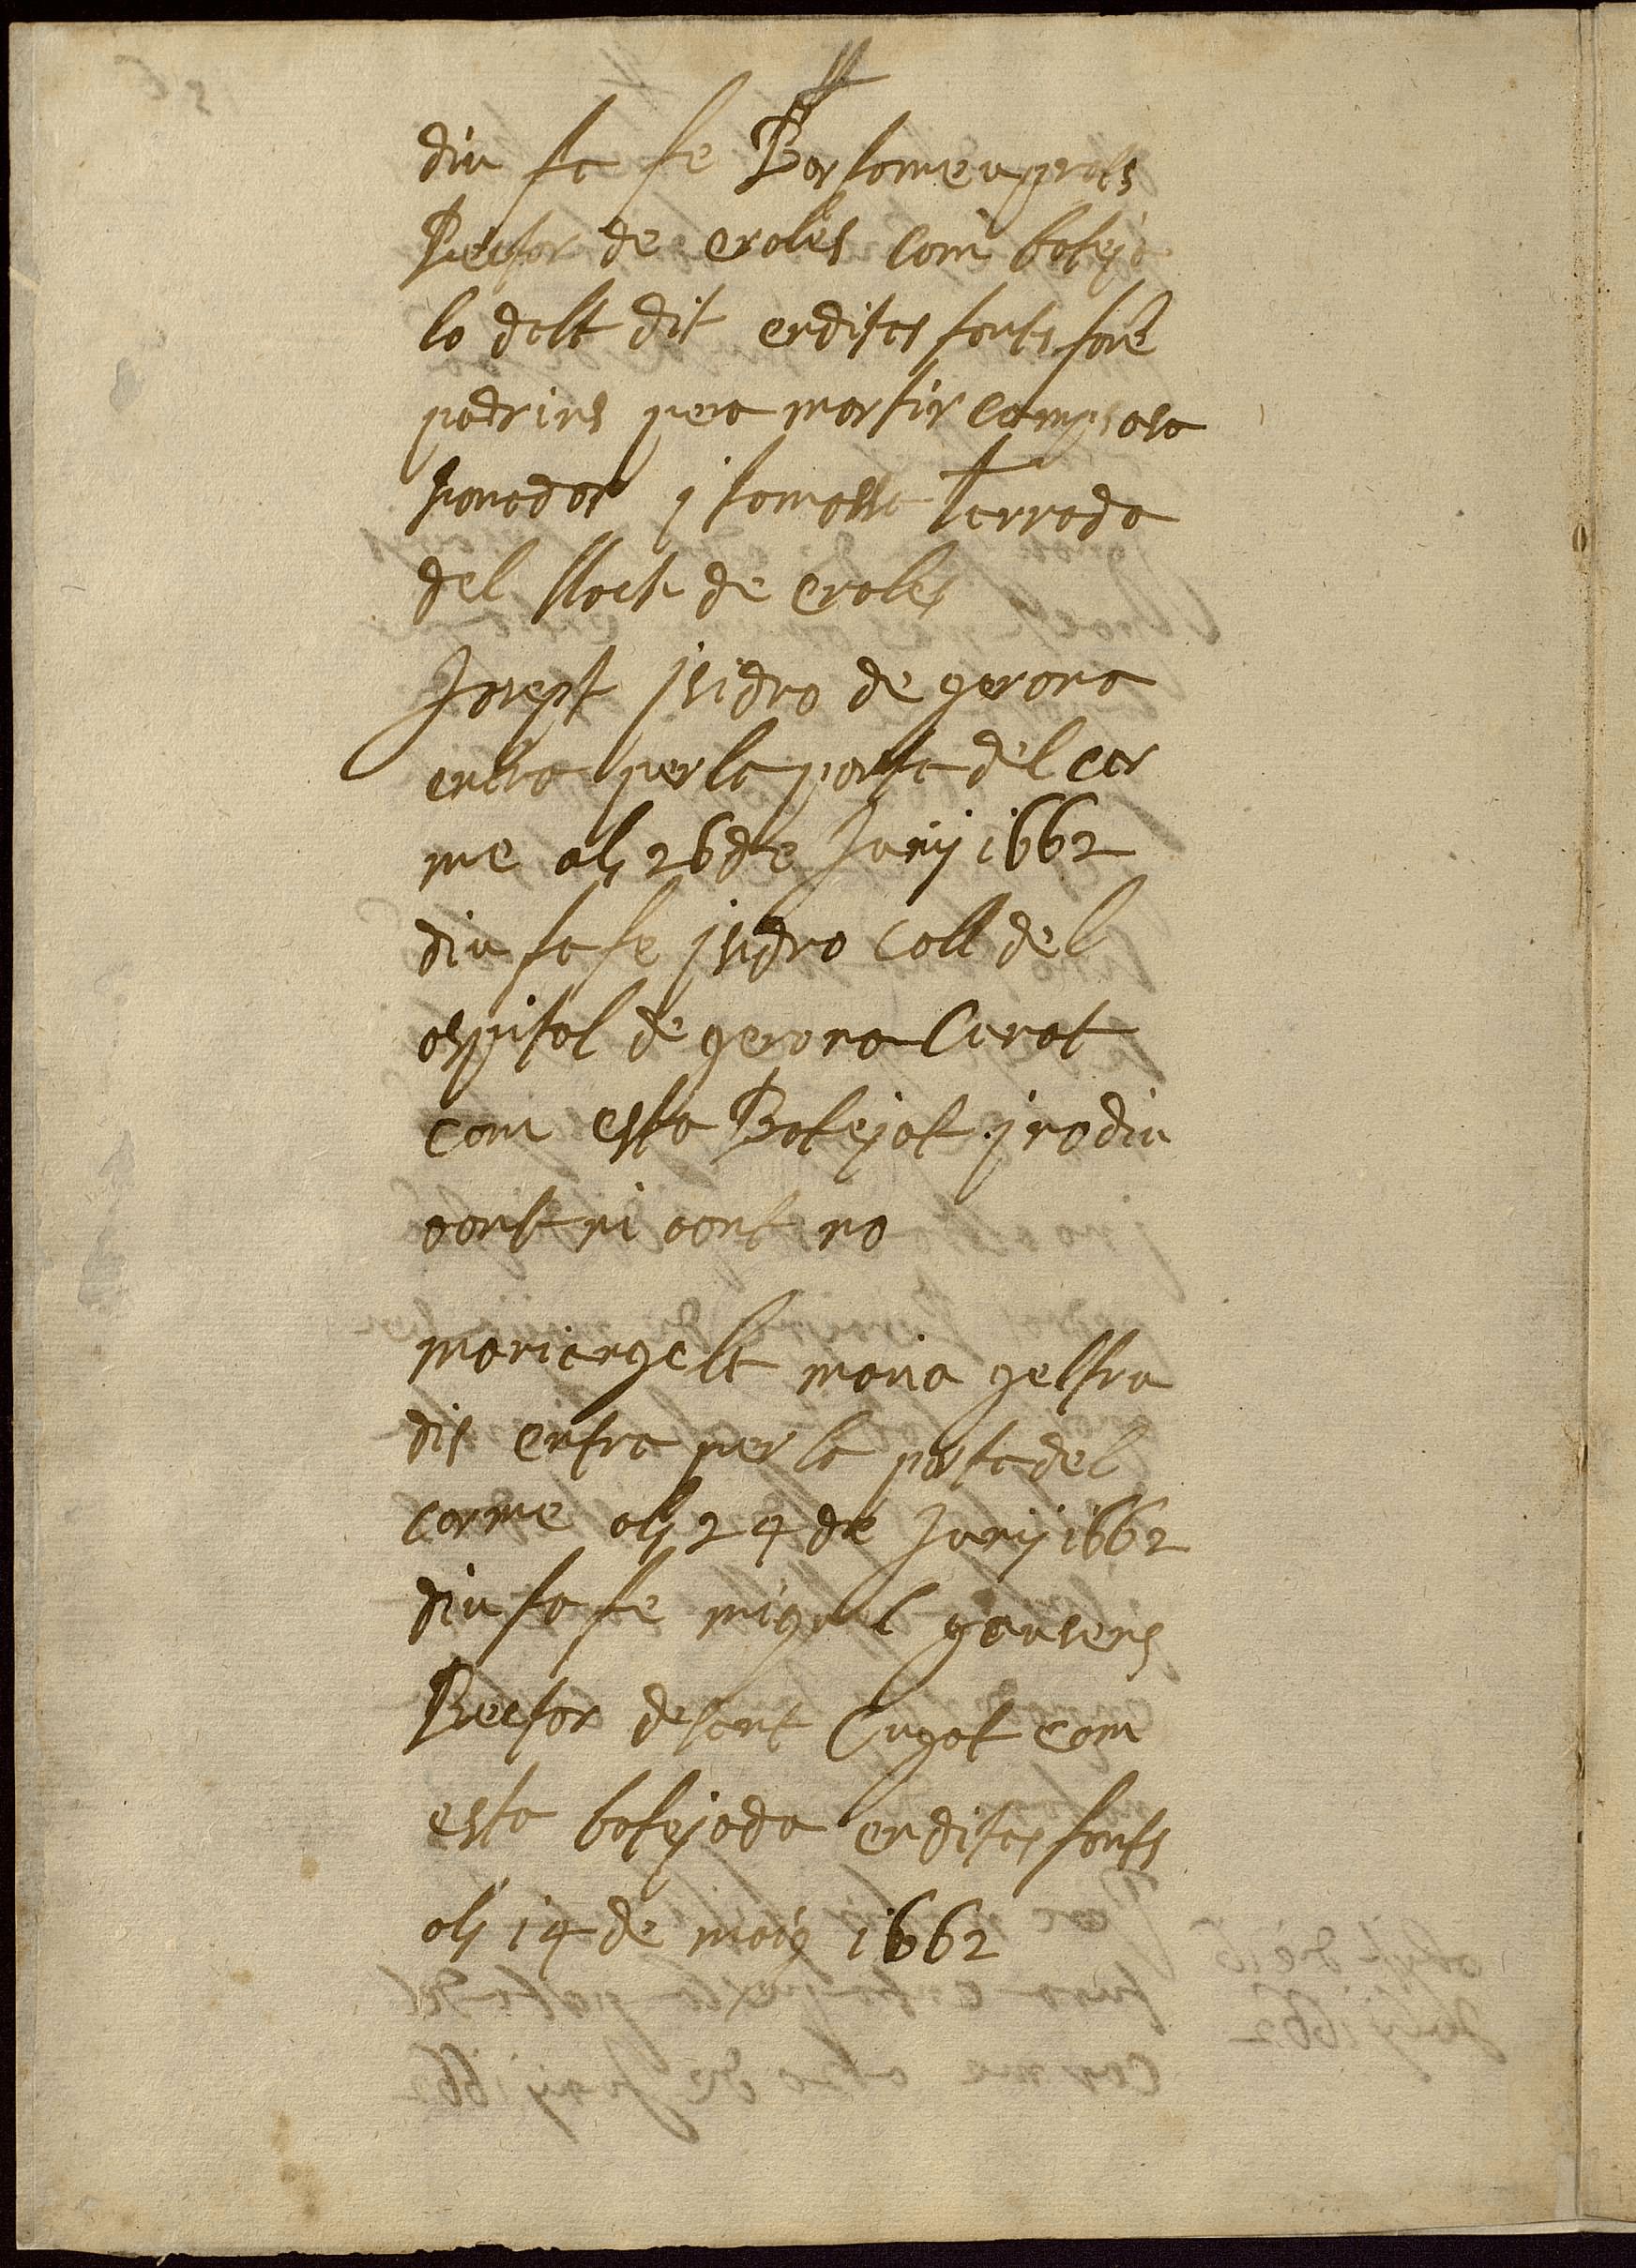 diu fa fe Bartomeu prats
Rector de eroles com bateja
lo dalt dit en dites fonts forẽ
padrins pera martir campsasa
pouador i tomassa terrada
del lloch de eroles
Josept isidro de gerona
entra per la porta del car
me als 26 de Juny 1662
diu fa fe isidro Coll del
ospital de gerona Curat
com esta Batejat i no diu
aont ni cont no
mariangelt maria geltru
dis entra per la porta del
carme als 24 de Juny 1662
diu fa fe miquel gausens
Rector de sant Cugat com
esta batejada en dites fonts
als 14 de maig 1662